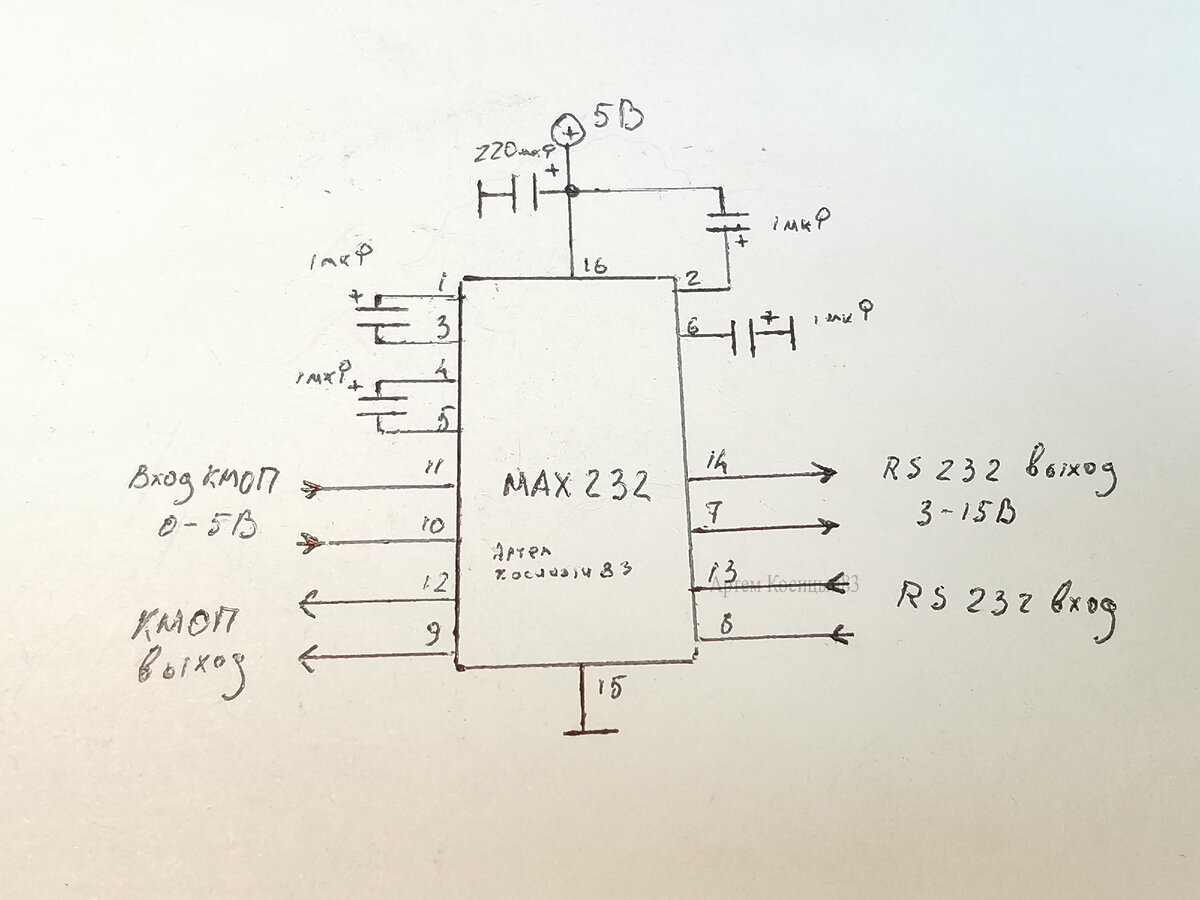 5В
220мкФ
+
+
1мкФ
+
16
1мкФ
+
1
2
3
6
+
1мкФ
1мкФ
+
4
5
11
14
Вход КМОП
0-5В
RS 232 выход
3-15В
MAX 232
10
7
Артем
83
12
13
Артем Косицын 83
RS 232 вход
КМОП
выход
9
8
15